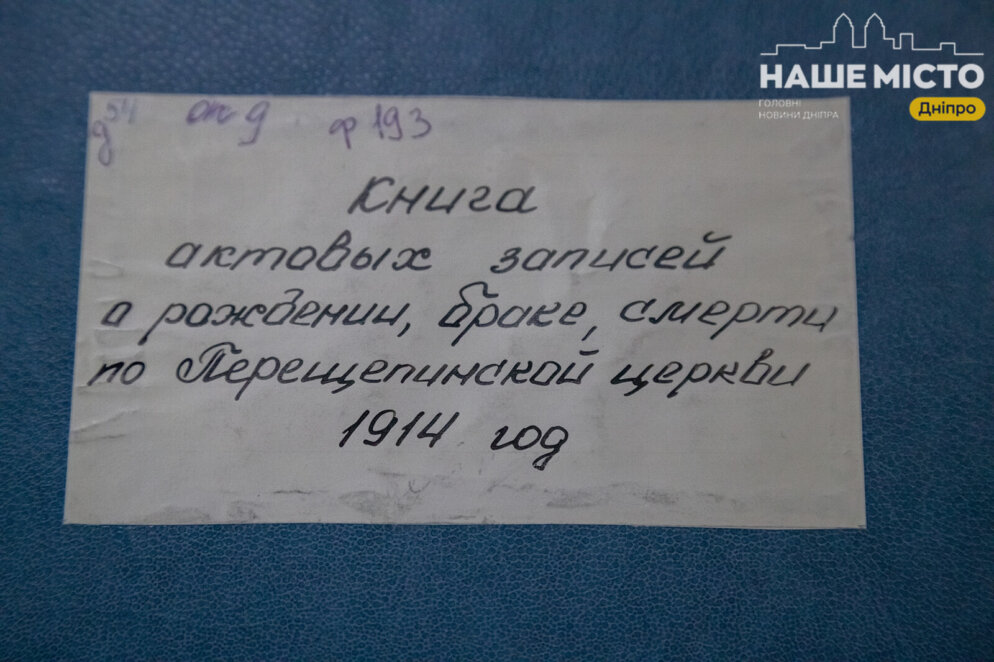 НАШЕ МІСТО
ГОЛОВНІ
НОВИНИ ДНІПРА
Дніпро
д 54 оп 9 ф 193
Книга
актовых записей
о рождении, браке, смерти
по Перещепинской церкви
1914 год